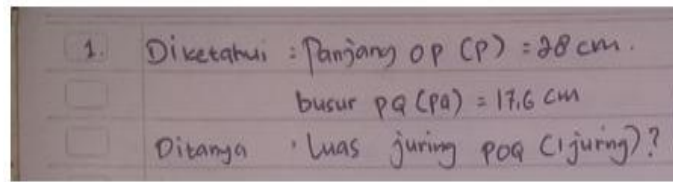 1. Diketahui : Panjang OP (P) = 28 cm.
busur PQ (PQ) = 17,6 cm
Ditanya : Luas juring POQ (Ljuring)?